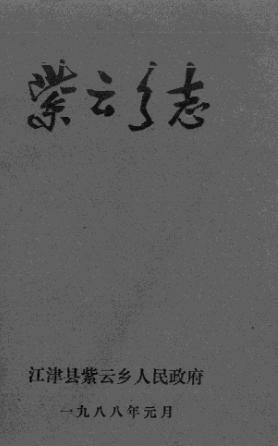 紫云乡志
江津县紫云乡人民政府
一九八八年元月